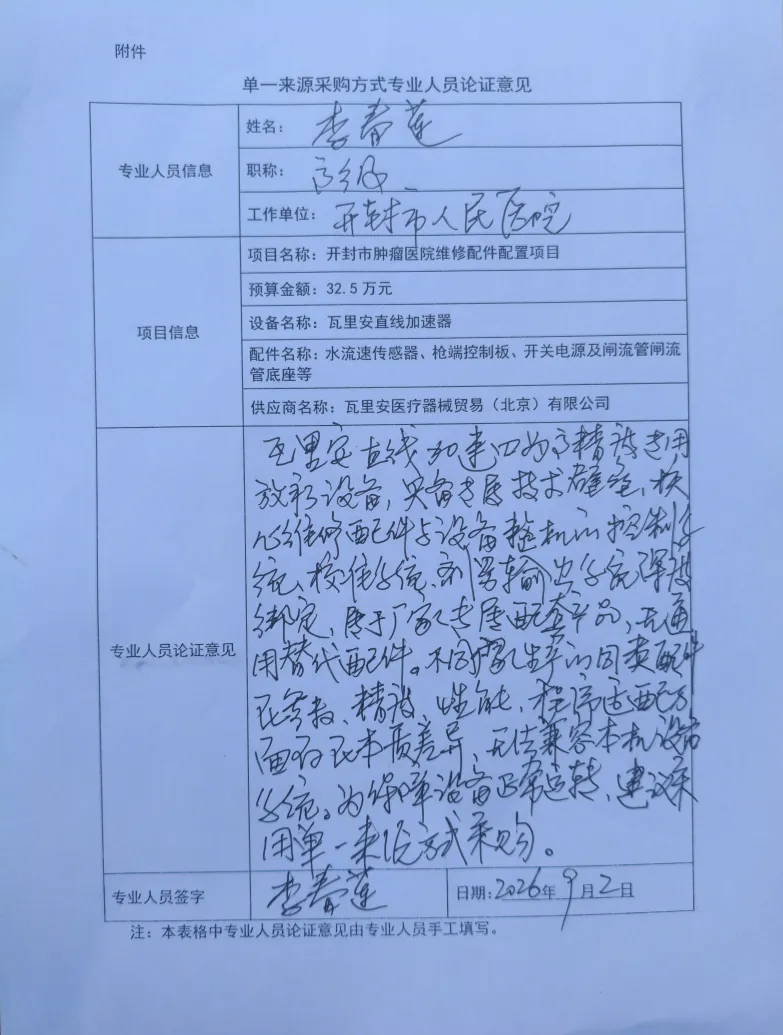 附件
单一来源采购方式专业人员论证意见
专业人员信息
姓名：李春莲
职称：高级
工作单位：开封市人民医院
项目信息
项目名称：开封市肿瘤医院维修配件配置项目
预算金额：32.5 万元
设备名称：瓦里安直线加速器
配件名称：水流速传感器、枪端控制板、开关电源及闸流管闸流
管底座等
供应商名称：瓦里安医疗器械贸易（北京）有限公司
专业人员论证意见
瓦里安直线加速器为高精设专用
放疗设备，具备专属技术壁垒，核
心维修配件与设备整机的控制系
统、校准系统、剂量输出系统深度
绑定，属于厂家专属配套产品，无通
用替代配件。不同厂家生产的同类配件
在参数、精度、性能、程序适配方
面存在本质差异，无法兼容本机设备
系统。为保障设备正常运转，建议采
用单一来源方式采购。
专业人员签字
李春莲
日期：2026年9月2日
注：本表格中专业人员论证意见由专业人员手工填写。